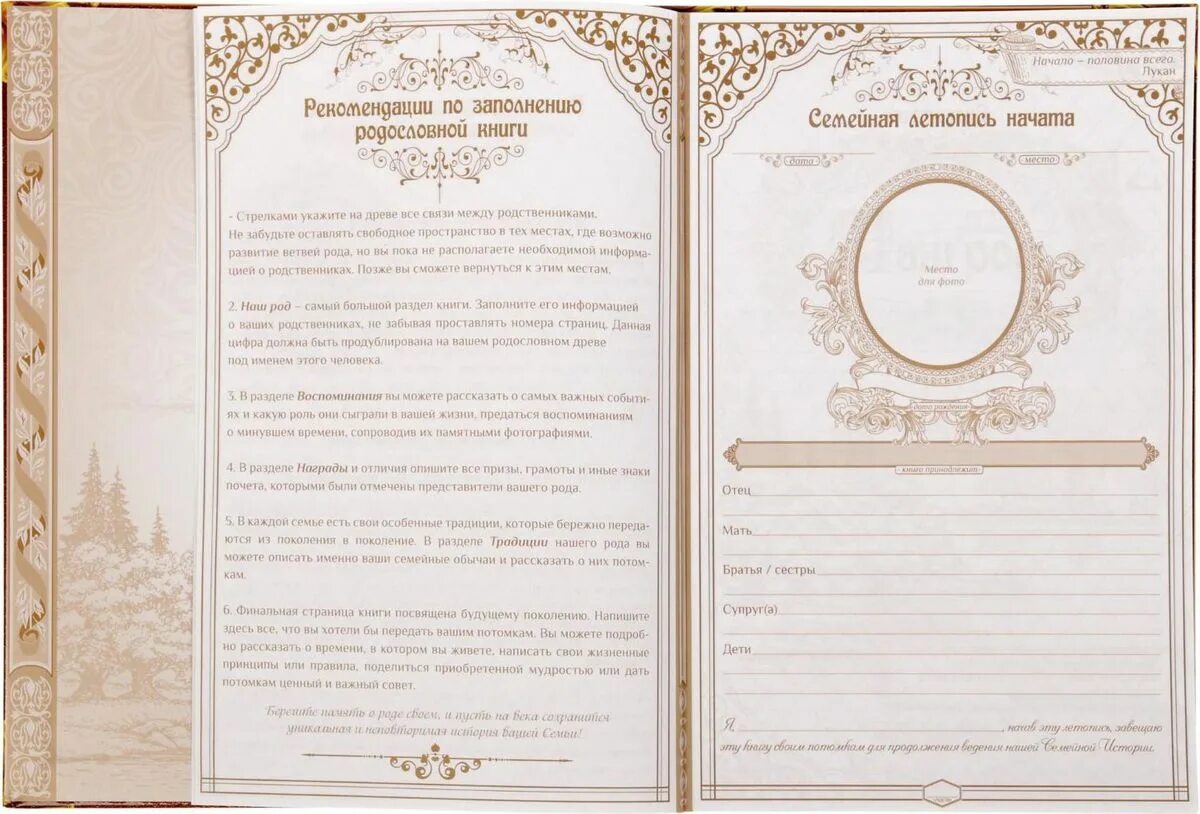 Рекомендации по заполнению
родословной книги
- Стрелками укажите на древе все связи между родственниками.
Не забудьте оставлять свободное пространство в тех местах, где возможно
развитие ветвей рода, но вы пока не располагаете необходимой информа-
цией о родственниках. Позже вы сможете вернуться к этим местам.
2. Наш род – самый большой раздел книги. Заполните его информацией
о ваших родственниках, не забывая проставлять номера страниц. Данная
цифра должна быть продублирована на вашем родословном древе
под именем этого человека.
3. В разделе Воспоминания вы можете рассказать о самых важных событи-
ях и какую роль они сыграли в вашей жизни, предаться воспоминаниям
о минувшем времени, сопроводив их памятными фотографиями.
4. В разделе Награды и отличия опишите все призы, грамоты и иные знаки
почета, которыми были отмечены представители вашего рода.
5. В каждой семье есть свои особенные традиции, которые бережно переда-
ются из поколения в поколение. В разделе Традиции нашего рода вы
можете описать именно ваши семейные обычаи и рассказать о них потом-
кам.
6. Финальная страница книги посвящена будущему поколению. Напишите
здесь все, что вы хотели бы передать вашим потомкам. Вы можете подроб-
но рассказать о времени, в котором вы живете, написать свои жизненные
принципы или правила, поделиться приобретенной мудростью или дать
потомкам ценный и важный совет.
Берегите память о роде своем, и пусть на века сохранится
уникальная и неповторимая история вашей Семьи!
Начало – половина всего.
Лукан
Семейная летопись начата
дата
место
Место
для фото
дата рождения
книга принадлежит
Отец
Мать
Братья / сестры
Супруг(а)
Дети
Я, , начав эту летопись, завещаю
эту книгу своим потомкам для продолжения ведения нашей Семейной Истории.